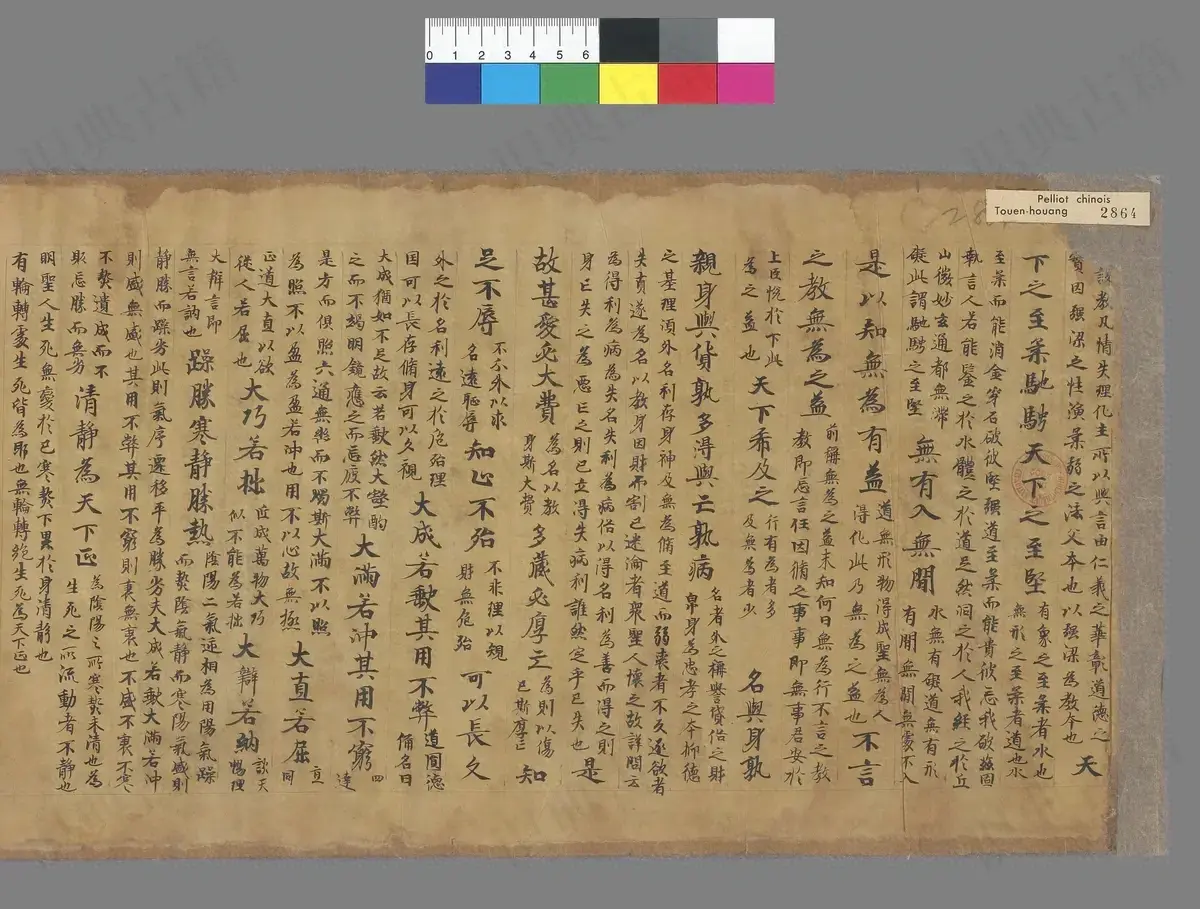 Pelliot chinois
Touen-houang 2864
0 1 2 3 4 5 6
該教及情失理化主所以興言由仁義之華彰道德之
質因强梁之性演柔弱之法父本也以强梁為教本也
天
下之至柔馳騁天下之至堅
有象之至柔者水也
無形之至柔者道也水
至柔而能消金穿石破彼堅强道至柔而能貴彼忘我破茲固
執言人若能鑒之於水體之於道足然洞之於人我經之於丘
山微妙玄通都無滯
礙此謂馳騁之至堅
無有入無間
水無有礙道無有形
有間無間無處不入
是以知無為有益
道無形物得成聖無為人
得化此乃無為之益也
不言
之教無為之益
前稱無為之益未知何日無為行不言之教
教即忘言任因循之事事即無事君安於
上臣悅於下此
為之益也
天下希及之
行有為者多
及無為者少
名與身孰
親身與貨孰多得與亡孰病
名者外之稱譽貨俗之財
帛身為忠孝之本抑德
之基理須外名利存身神及無為脩至道而弱喪者不久遂欲者
失貴遂為名以教身因財而割己迷淪者眾聖人懷之故詳問云
為得利為病為失名失利為病俗以得名利為善而得之則
身亡失之為惡亡之則己立得失病利誰然定乎已失也
是
故甚愛必大費
為名以教
身斯大費
多藏必厚亡
為則以傷
已斯厚亡
知
足不辱
不分外以求
名遠恥辱
知止不殆
不非理以規
財無危殆
可以長久
外之於名利遠之於危殆理
因可以長存脩身可以久視
大成若歞其用不弊
道圓德
備名曰
大成猶如不足故云若歞然大壑酌
之而不竭明鏡應之而忘疲不弊
大滿若沖其用不窮
四
達
是方而俱照六通無幣而不燭斯大滿不以照
為照不以盈為盈若沖也用不以心故無極
大直若屈
直
同
正道大直以欲
從人若屈也
大巧若拙
匠成萬物大巧
似不能為若拙
大辯若納
談天
暢理
大辯言即
無言若訥也
躁勝寒靜勝熱
陰陽二氣遞相為用陽氣躁
而熱陰氣靜而寒陽氣盛則
靜勝而躁劣此則氣序遷移平為勝劣夫大成若歞大滿若沖
則盛無盛也其用不弊其用不窮則衰無衰也不盛不衰不寒
不熱遺成而不
欺忘勝而無劣
清靜為天下正
為陰陽之所寒熱未清也為
生死之所流動者不靜也
明聖人生死無變於己寒熱下累於身清靜也
有輪轉處生死皆為耶也無輪轉絕生死為天下正也